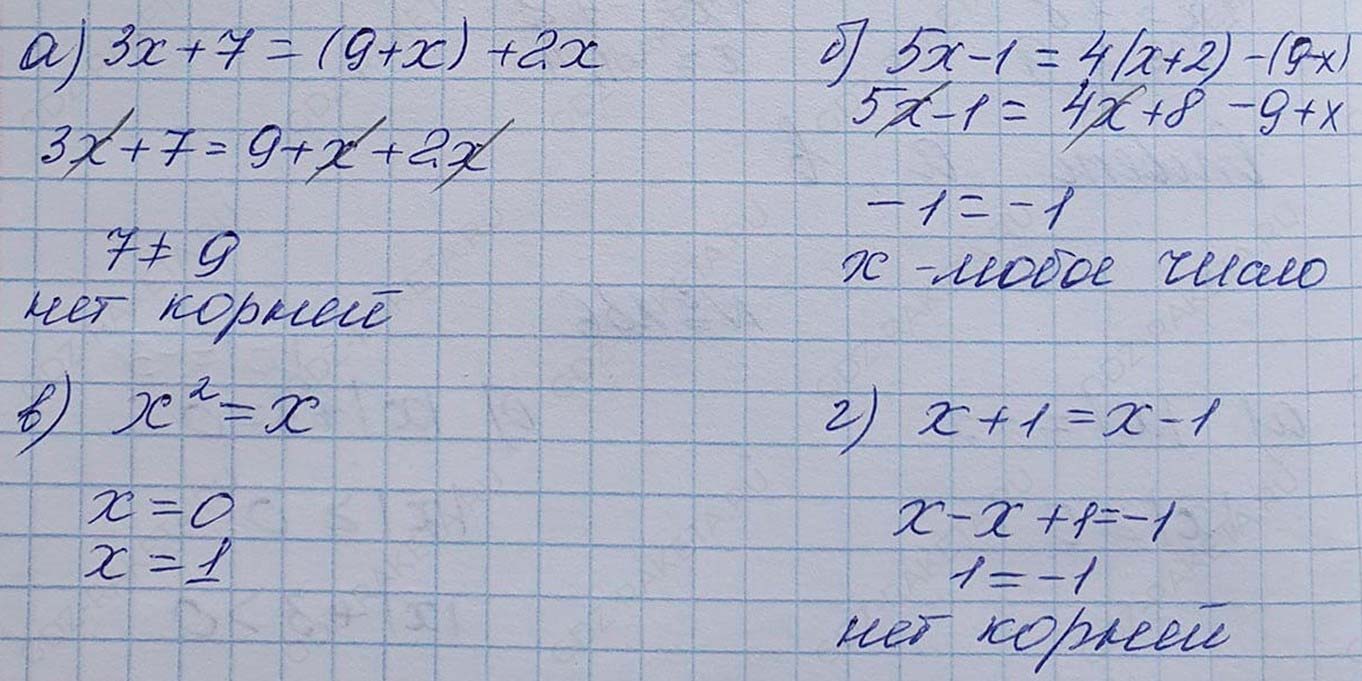 а) 3x + 7 = (9 + x) + 2x
3x + 7 = 9 + x + 2x
7 ≠ 9
нет корней
б) 5x - 1 = 4(x + 2) - (9 - x)
5x - 1 = 4x + 8 - 9 + x
- 1 = - 1
x - любое число
в) x² = x
x = 0
x = 1
г) x + 1 = x - 1
x - x + 1 = - 1
1 = - 1
нет корней